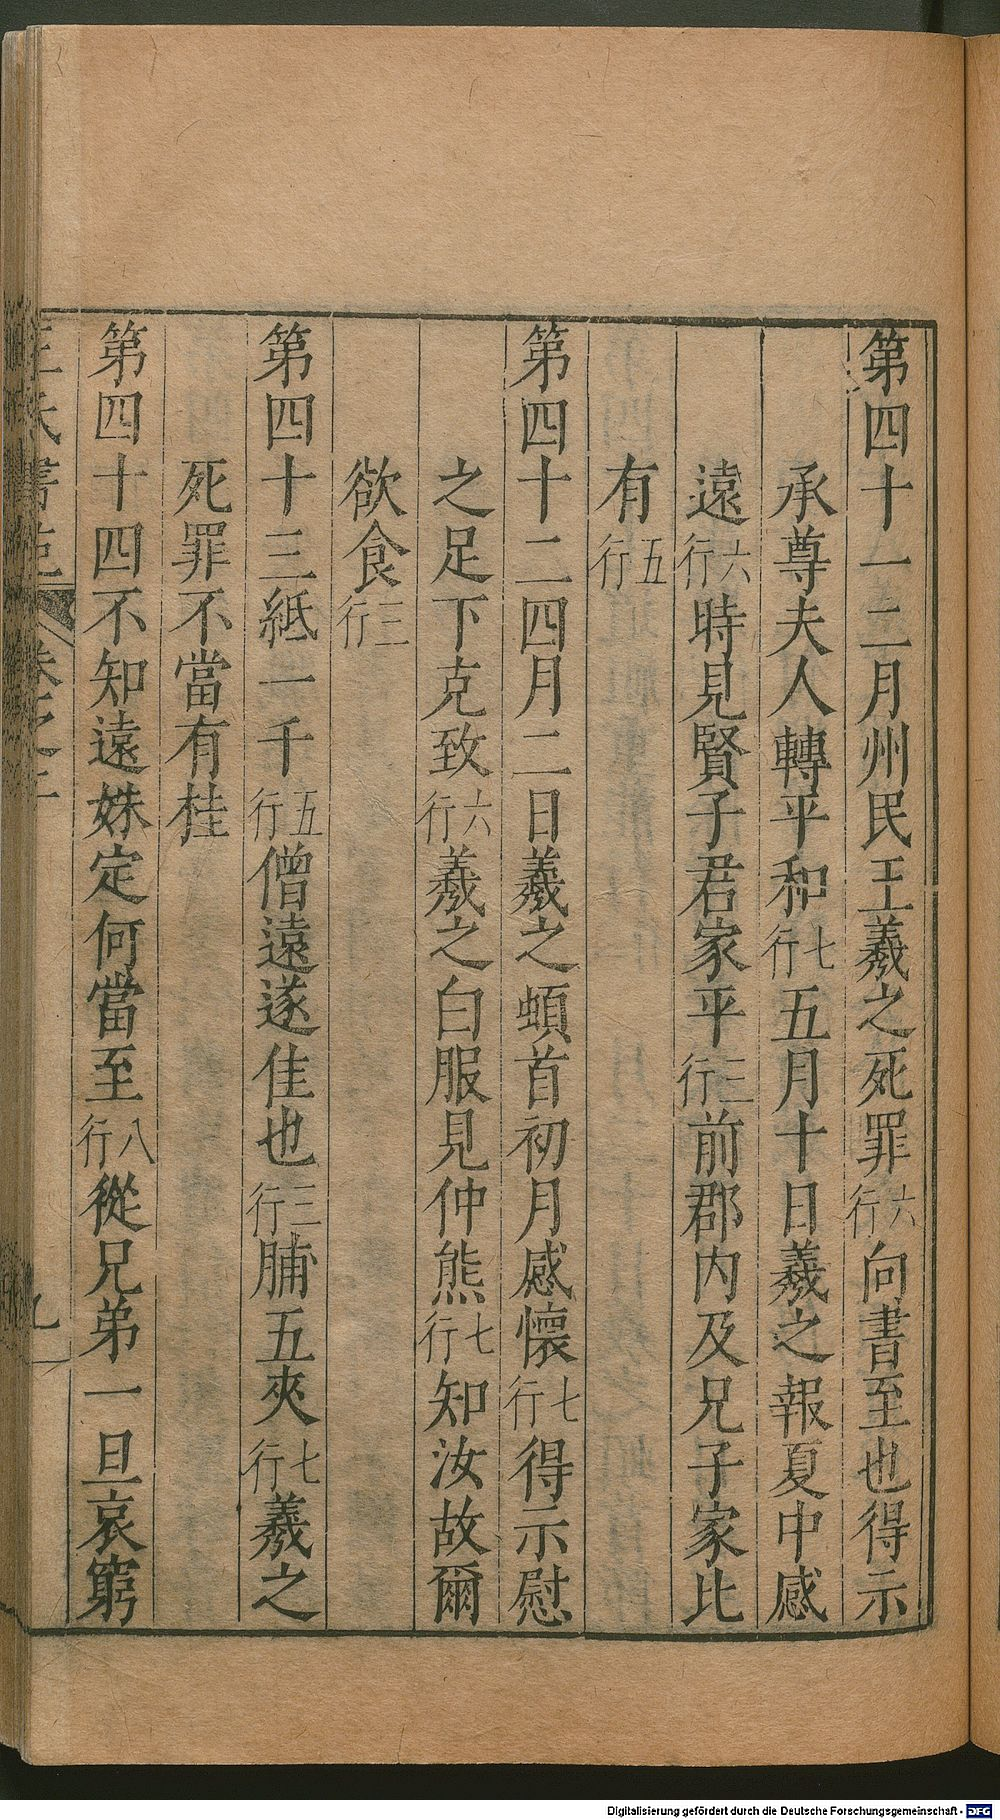 第四十一二月州民王羲之死罪六行向書至也得示
承尊夫人轉平和七行五月十日羲之報夏中感
遠六行時見賢子君家平三行前郡内及兄子家比
有五行
第四十二四月二日羲之頓首初月感懷七行得示慰
之足下克致六行羲之白服見仲熊七行知汝故爾
欲食三行
第四十三紙一千五行僧遠遂佳也三行脯五夾七行羲之
死罪不當有桂
第四十四不知遠姝定何當至八行從兄弟一旦哀窮
王氏書苑 卷之 九
Digitalisierung gefördert durch die Deutsche Forschungsgemeinschaft - DFG